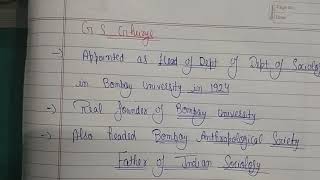 G S Ghurye
→) Appointed as Head of Dept of Dept of Sociology
in Bombay University in 1924
→) Real founder of Bombay University
→) Also headed Bombay Anthropological Society
Father of Indian Sociology